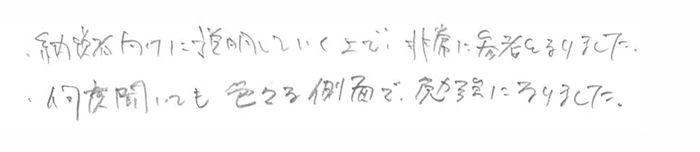 ・納税者向けに説明していく上で、非常に参考になりました。
・何度聞いても色々な側面で、勉強になりました。